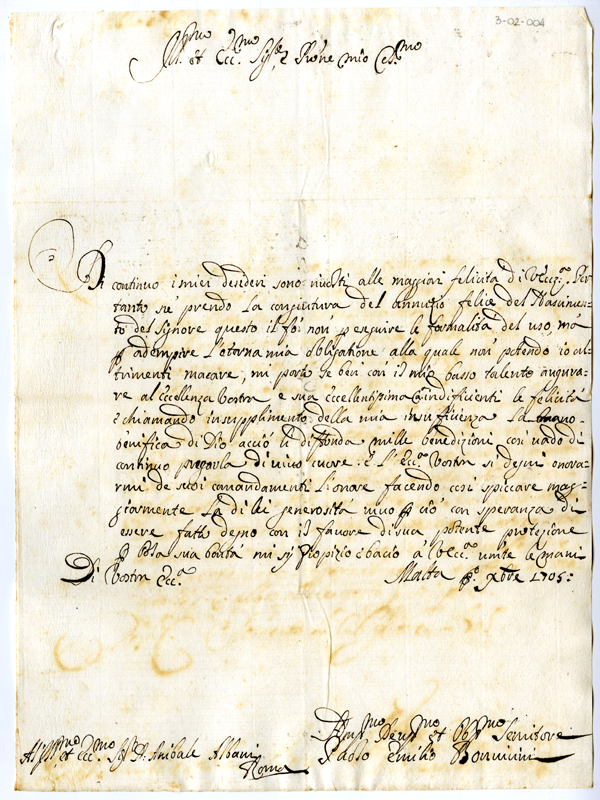 3-02-004
Ill.mo et Ecc.mo Sig.re e Prōne mio Col.mo
Di continuo i miei desideri sono rivolti alle maggiori felicità di V. Ecc.a Per
tanto si prendo la congiuntura del annuzio felice del Nascimen-
to del Signore questo il fò non p eseguire le formalità del uso, mà
p adempire l'eterna mia obligatione alla quale non potendo io al-
trimenti macare, mi porto se ben con il mio basso talento augura-
re al Eccellenza Vostra e sua Eccellentissima le felicità
e chiamando in supplimento della mia insufficienza la mano
benifica di Dio acciò li diffonda mille benedizioni così vado di
continuo pregarla di vivo cuore: e l'Ecc.a Vostra si degni onorar-
rmi de suoi comandamenti l'onore facendo così spiccare mag-
giormente la di lei generosità vivo p ciò con speranza di
essere fatto degno con il favore di sua potente protezione
p sua bontà mi e bacio à V. Ecc.a umte le mani
Di Vostra Ecc.a Malta p.o Xbre 1705:
Hum.mo Deu.mo et Obb.mo Servitore
Al Ill.mo et Ecc.mo Sig.r D. Anibale Albani Paolo Emilio
Roma